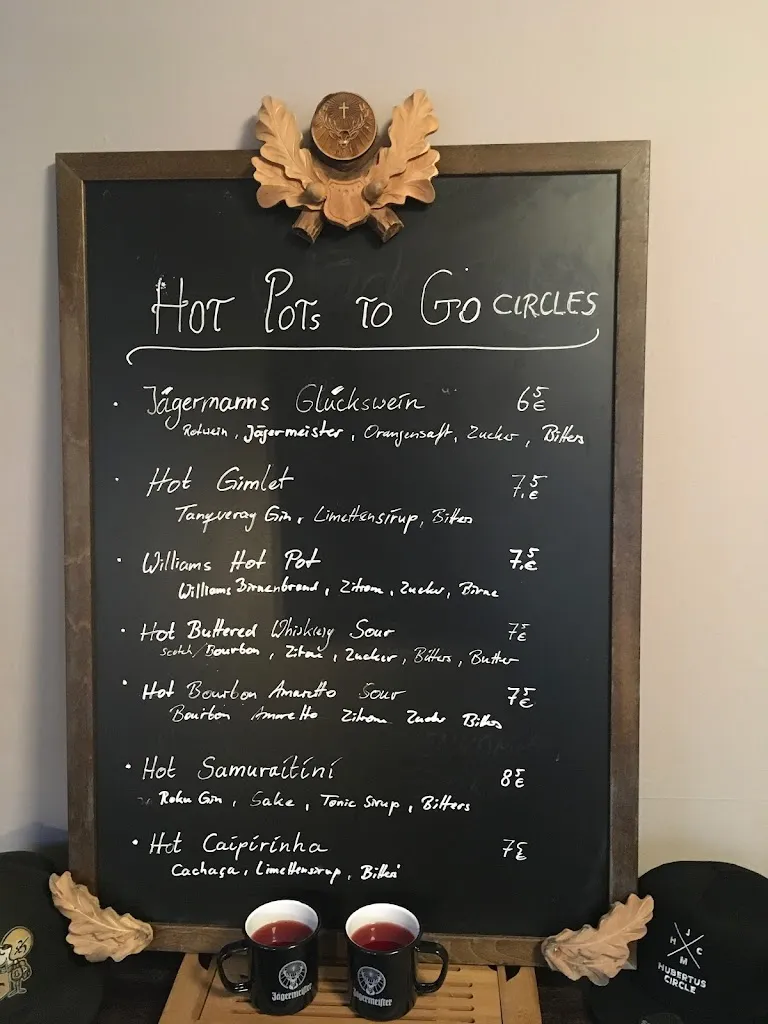 HOT POTS TO GO CIRCLES
Jägermanns Glückswein 6,5 €
Rotwein, Jägermeister, Orangensaft, Zucker, Bitters
Hot Gimlet 7,5 €
Tanqueray Gin, Limettensirup, Bitters
Williams Hot Pot 7,5 €
Williams Birnenbrand, Zitrone, Zucker, Birne
Hot Buttered Whiskey Sour 7,5 €
Scotch/Bourbon, Zitrone, Zucker, Bitters, Butter
Hot Bourbon Amaretto Sour 7,5 €
Bourbon Amaretto Zitrone Zucker Bitters
Hot Samuraitini 8,5 €
Roku Gin, Sake, Tonic Sirup, Bitters
Hot Caipirinha 7,5 €
Cachaça, Limettensirup, Bitters
Jägermeister
Jägermeister
J
H C
M
HUBERTUS
CIRCLE